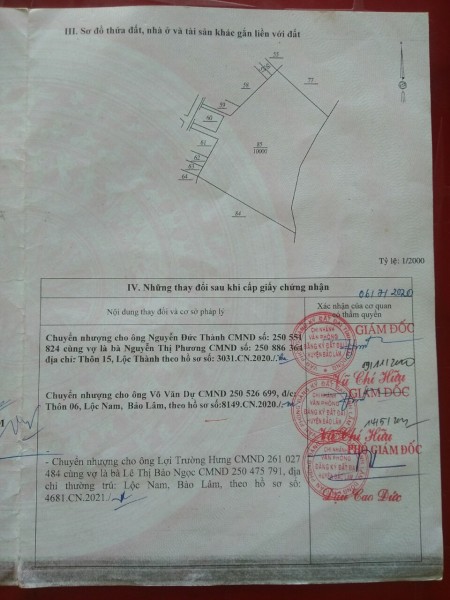 III. Sơ đồ thửa đất, nhà ở và tài sản khác gắn liền với đất
55
58
77
59
60
85
10000
61
62
63
64
84
Tỷ lệ: 1/2000
IV. Những thay đổi sau khi cấp giấy chứng nhận
Nội dung thay đổi và cơ sở pháp lý
Xác nhận của cơ quan
có thẩm quyền
Chuyển nhượng cho ông Nguyễn Đức Thành CMND số: 250 551
824 cùng vợ là bà Nguyễn Thị Phương CMND số: 250 886 364
địa chỉ: Thôn 15, Lộc Thành theo hồ sơ số: 3031.CN.2020./.
GIÁM ĐỐC
CHI NHÁNH
VĂN PHÒNG
ĐĂNG KÝ ĐẤT ĐAI
HUYỆN BẢO LÂM
Vũ Chí Hữu
Chuyển nhượng cho ông Võ Văn Dự CMND 250 526 699, đ/c:
Thôn 06, Lộc Nam, Bảo Lâm, theo hồ sơ số:8149.CN.2020./.
GIÁM ĐỐC
CHI NHÁNH
VĂN PHÒNG
ĐĂNG KÝ ĐẤT ĐAI
HUYỆN BẢO LÂM
Vũ Chí Hữu
- Chuyển nhượng cho ông Lợi Trường Hưng CMND 261 027
484 cùng vợ là bà Lê Thị Bảo Ngọc CMND 250 475 791, địa
chỉ thường trú: Lộc Nam, Bảo Lâm, theo hồ sơ số:
4681.CN.2021./.
PHÓ GIÁM ĐỐC
CHI NHÁNH
VĂN PHÒNG
ĐĂNG KÝ ĐẤT ĐAI
HUYỆN BẢO LÂM
Đậu Cao Đức